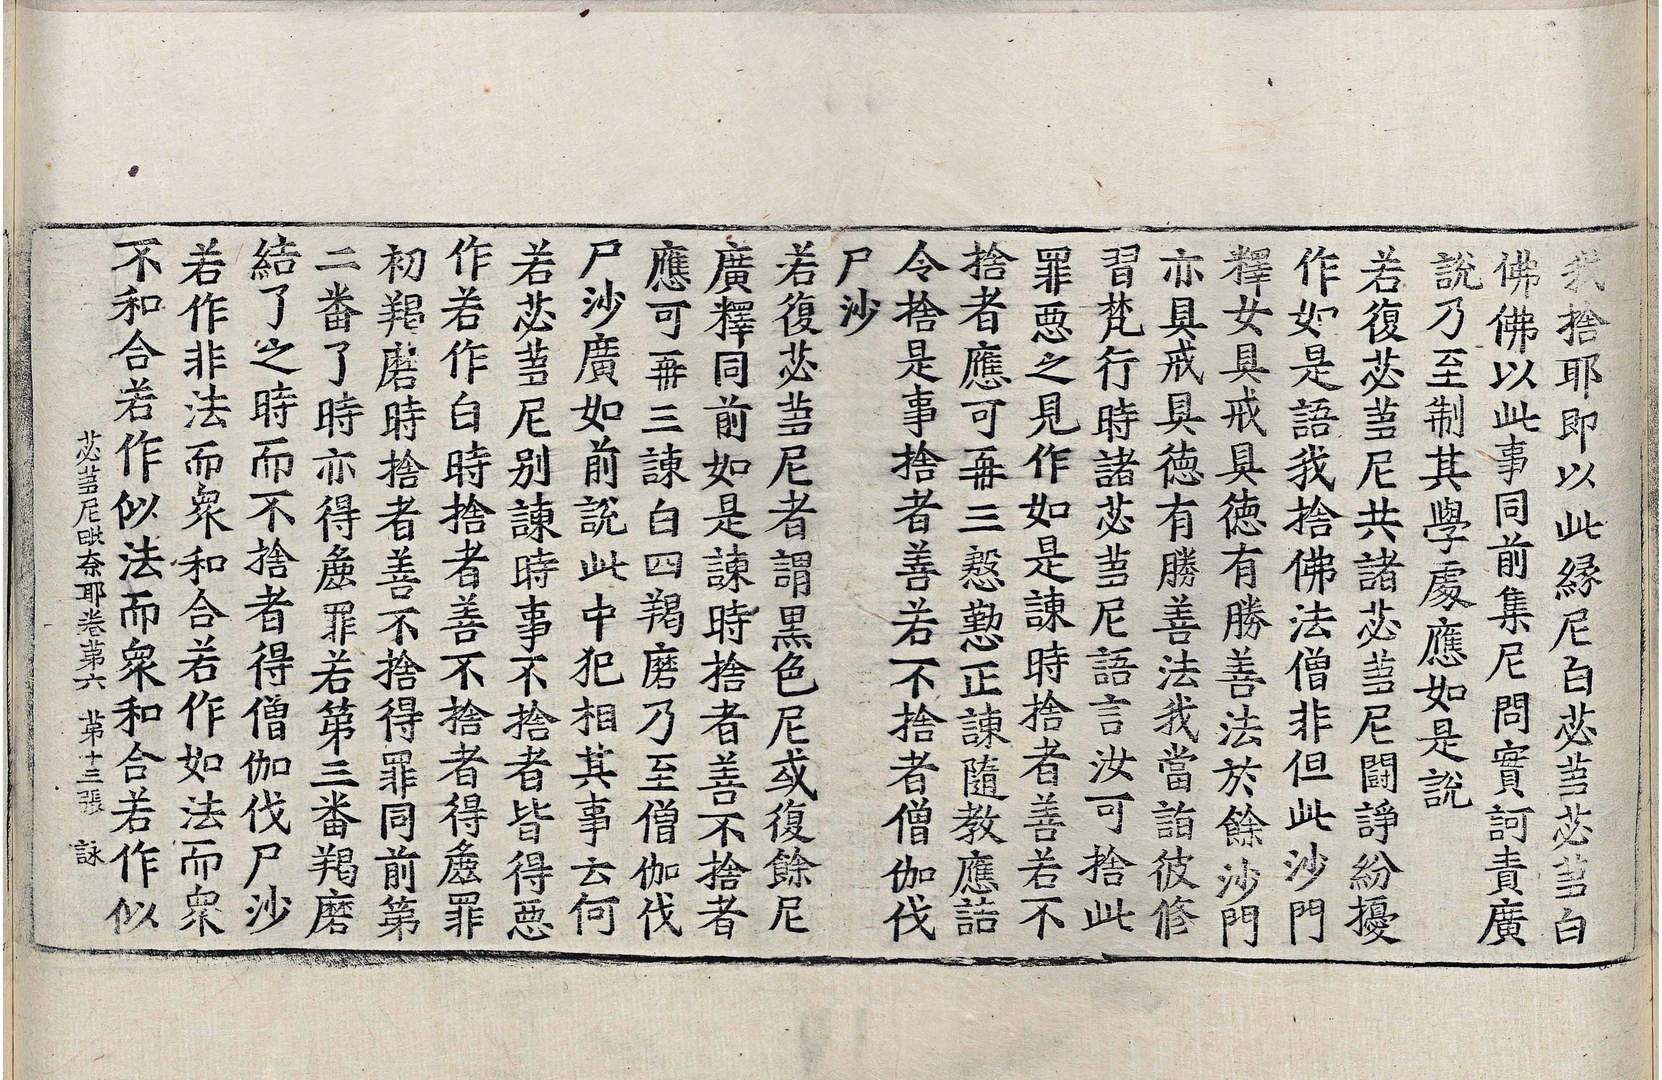 我捨耶即以此縁尼白苾芻苾芻白
佛佛以此事同前集尼問實訶責廣
說乃至制其學處應如是說
若復苾芻尼共諸苾芻尼鬪諍紛擾
作如是語我捨佛法僧非但此沙門
釋女具戒具德有勝善法於餘沙門
亦具戒具徳有勝善法我當詣彼修
習梵行時諸苾芻尼語言汝可捨此
罪惡之見作如是諫時捨者善若不
捨者應可再三慇懃正諫隨教應詰
令捨是事捨者善若不捨者僧伽伐
尸沙
若復苾芻尼者謂黑色尼或復餘尼
廣釋同前如是諫時捨者善不捨者
應可再三諫白四羯磨乃至僧伽伐
尸沙廣如前說此中犯相其事云何
若苾芻尼别諫時事不捨者皆得惡
作若作白時捨者善不捨者得麁罪
初羯磨時捨者善不捨得罪同前第
二番了時亦得麁罪若第三番羯磨
結了之時而不捨者得僧伽伐尸沙
若作非法而衆和合若作如法而衆
不和合若作似法而衆和合若作似
苾芻尼毗奈耶卷第六 第十三張 詠